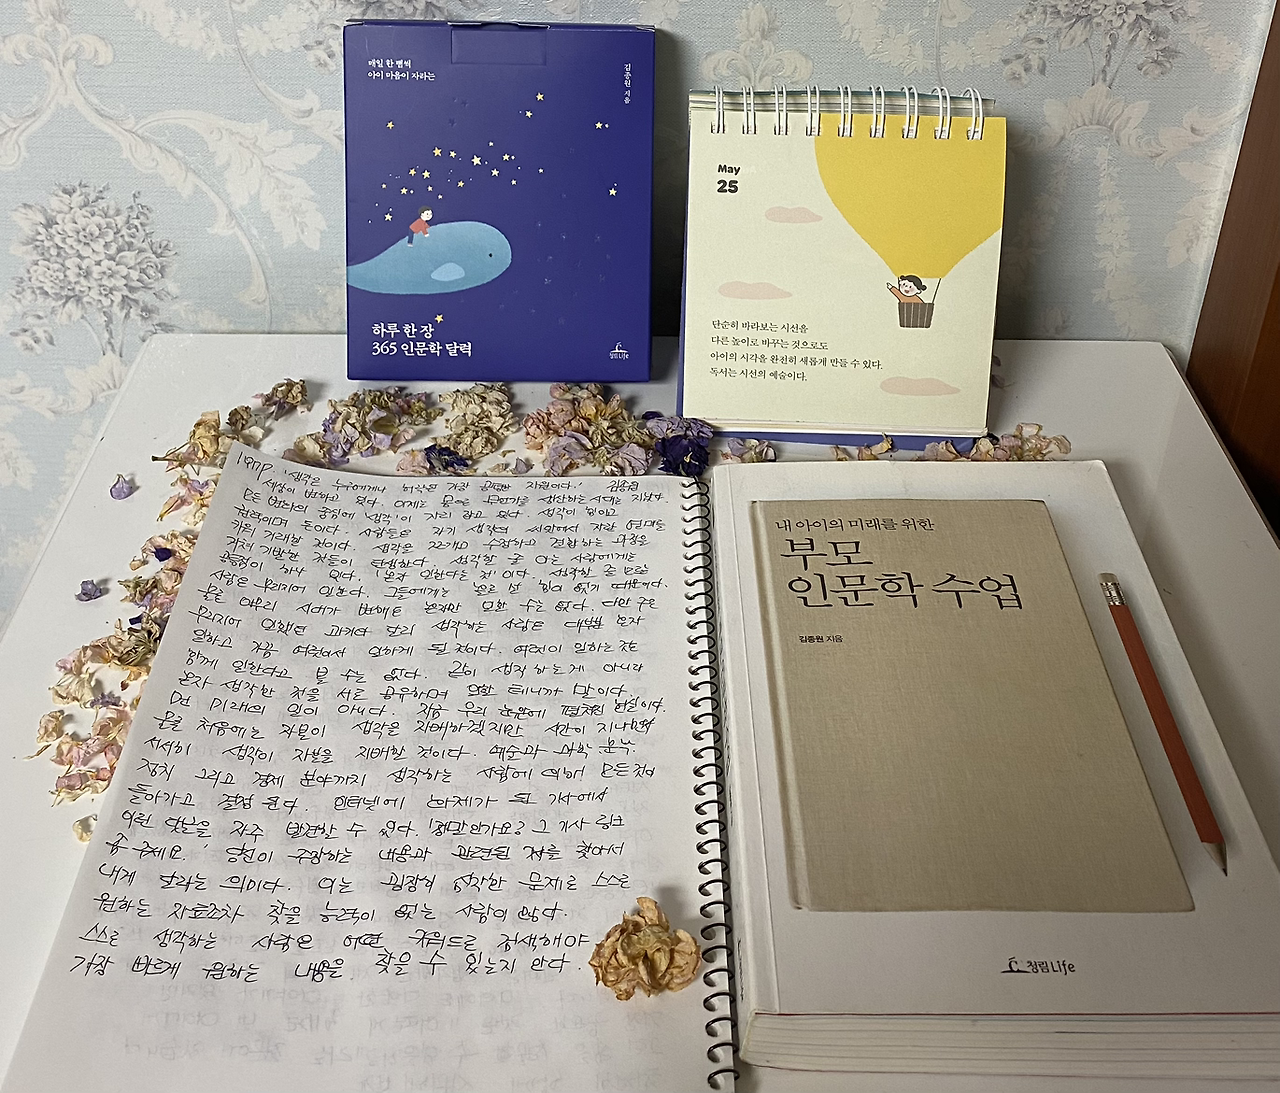 매일 한 뼘씩
아이 마음이 자라는
김종원 지음
하루 한 장
365 인문학 달력
청림Life
May
25
단순히 바라보는 시선을
다른 높이로 바꾸는 것으로도
아이의 시각을 완전히 새롭게 만들 수 있다.
독서는 시선의 예술이다.
197p. '생각은 누구에게나 허락된 가장 공평한 자원이다.' 김종원
세상이 변하고 있다. 이제는 몸으로 무언가를 생산하는 시대는 지났다.
모든 변화의 중심에 '생각'이 자리 잡고 있다. 생각이 힘이고
권력이며 돈이다. 사람들은 각자 생각의 씨앗에서 자란 열매를
거래할 것이다. 생각을 쪼개고 수정하고 결합하는 과정을
거쳐 기발한 것들이 탄생한다. 생각할 줄 아는 사람에게는
공통점이 하나 있다. '혼자 일한다는 것'이다. 생각할 줄 모르는
사람은 무리지어 일한다. 그들에게는 홀로 설 힘이 없기 때문이다.
물론 아무리 시대가 변해도 혼자만 모든 수는 없다. 다만
무리지어 일했던 과거와 달리 생각하는 사람은 대부분 혼자
일하고 가끔 여럿이서 일하게 될 것이다. 여럿이 일하는 것도
함께 일한다고 볼 수는 없다. 같이 생각하는 게 아니라
혼자 생각한 것을 서로 공유하며 일할 테니까 말이다.
먼 미래의 일이 아니다. 지금 우리 눈앞에 펼쳐진 현실이다.
물론 처음에는 자본이 생각을 지배하겠지만 시간이 지나면서
서서히 생각이 자본을 지배할 것이다. 예술과 과학 분야,
정치 그리고 경제 분야까지 생각하는 사람에 의해 모든 것이
돌아가고 결정된다. 인터넷에 화제가 된 기사에서
이런 댓글을 자주 발견할 수 있다. '정말인가요? 그 기사 링크
좀 주세요.' 당신이 주장하는 내용과 관련된 자료를 찾아서
내게 달라는 의미다. 이는 굉장히 심각한 문제로 스스로
원하는 자료조차 찾을 능력이 없는 사람이 많다.
스스로 생각하는 사람은 어떤 키워드로 검색해야
가장 빠르게 원하는 내용을 찾을 수 있는지 안다.
내 아이의 미래를 위한
부모
인문학 수업
김종원 지음
청림Life